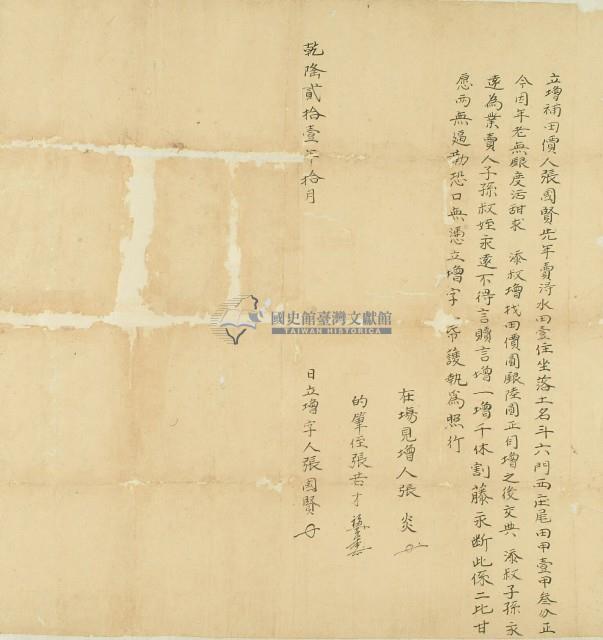 立增補田價人張國賢先年賣得水田壹住坐落土名斗六門西庄尾田甲壹甲叁分正
今因年老無銀度活甜求 添叔增找田價圓銀陸圓正自增之後交與 添叔子孫永
遠為業賣人子孫叔姪永遠不得言贖言增一增千休割藤永断此係二比甘
愿两無逼勒恐口無憑立增字一帋護執為照行
在塲見增人張炎
的筆侄張若才
乾隆貳拾壹年拾月 日立增字人張國賢
國史館臺灣文獻館
TAIWAN HISTORICA